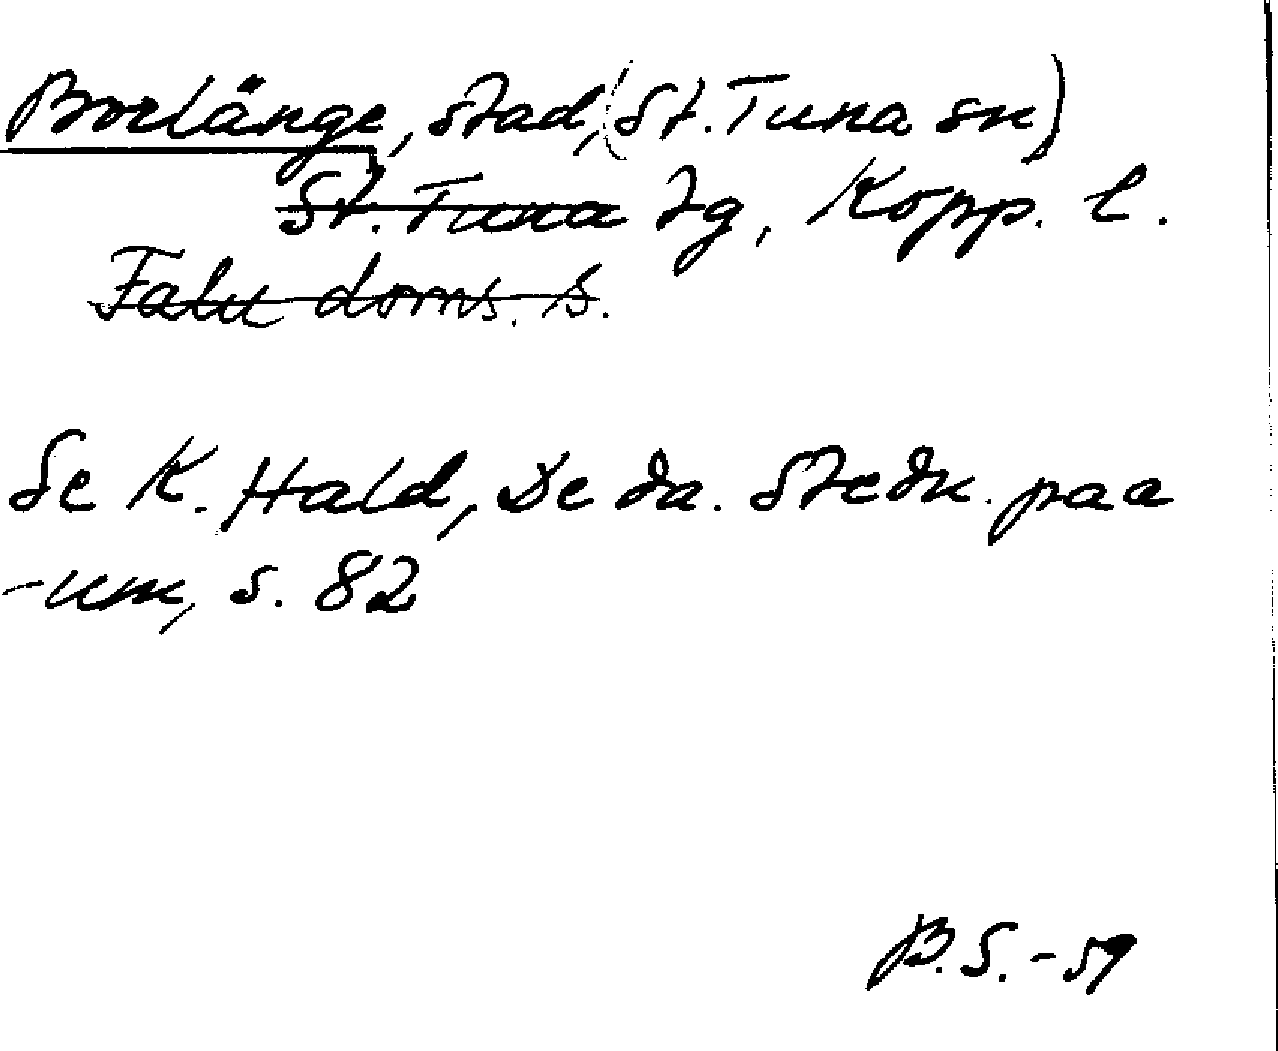 Borlänge, stad, (St. Tuna sn)
St. Tuna tg, Kopp. l.
Falu doms. s.
Se K. Hald, De da. Stedn. paa
-um, s. 82
B.S. -59